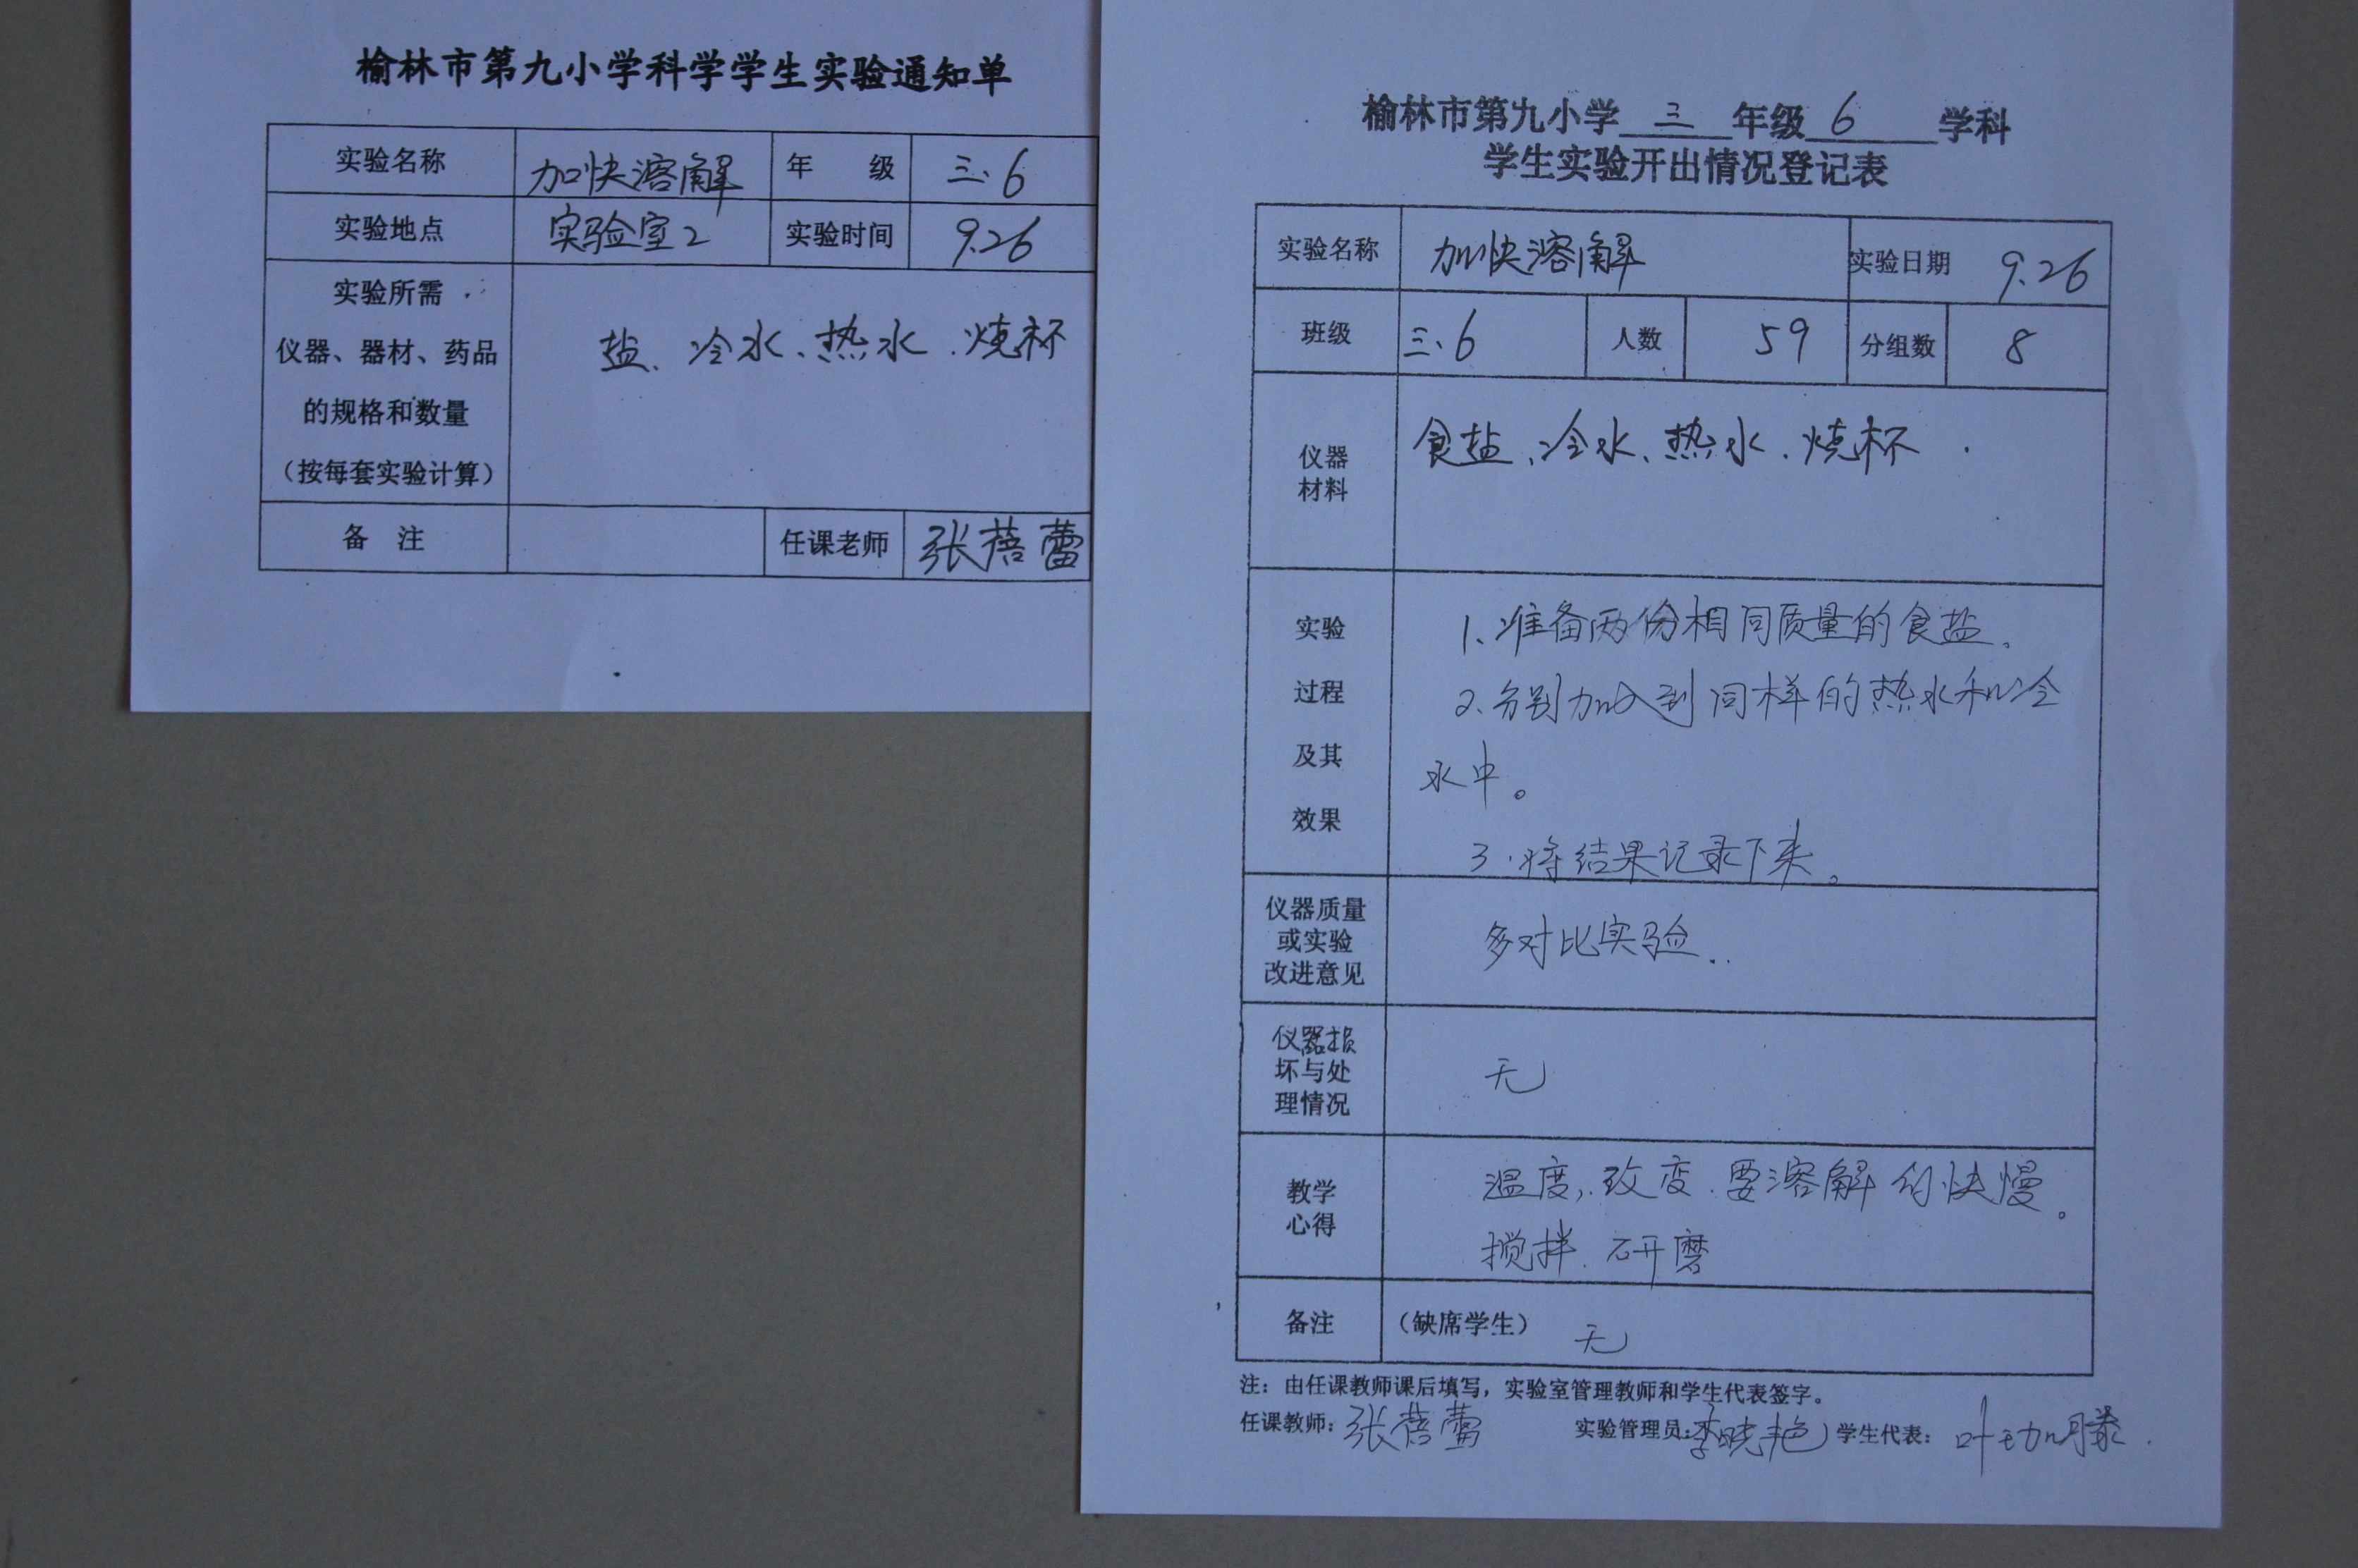 榆林市第九小学科学学生实验通知单
实验名称 加快溶解 年 级 三.6
实验地点 实验室2 实验时间 9.26
实验所需
仪器、器材、药品
的规格和数量
（按每套实验计算）
盐、冷水、热水、烧杯
备 注 任课老师 张蓓蕾
榆林市第九小学 三 年级 6 学科
学生实验开出情况登记表
实验名称 加快溶解 实验日期 9.26
班级 三.6 人数 59 分组数 8
仪器
材料
食盐、冷水、热水、烧杯.
实验
过程
及其
效果
1.准备两份相同质量的食盐。
2.分别加入到同样的热水和冷
水中。
3.将结果记录下来。
仪器质量
或实验
改进意见
多对比实验..
仪器损
坏与处
理情况
无
教学
心得
温度,改变.要溶解的快慢。
搅拌.研磨
备注 （缺席学生） 无
注：由任课教师课后填写，实验室管理教师和学生代表签字。
任课教师：张蓓蕾 实验管理员：李晓艳 学生代表：叶